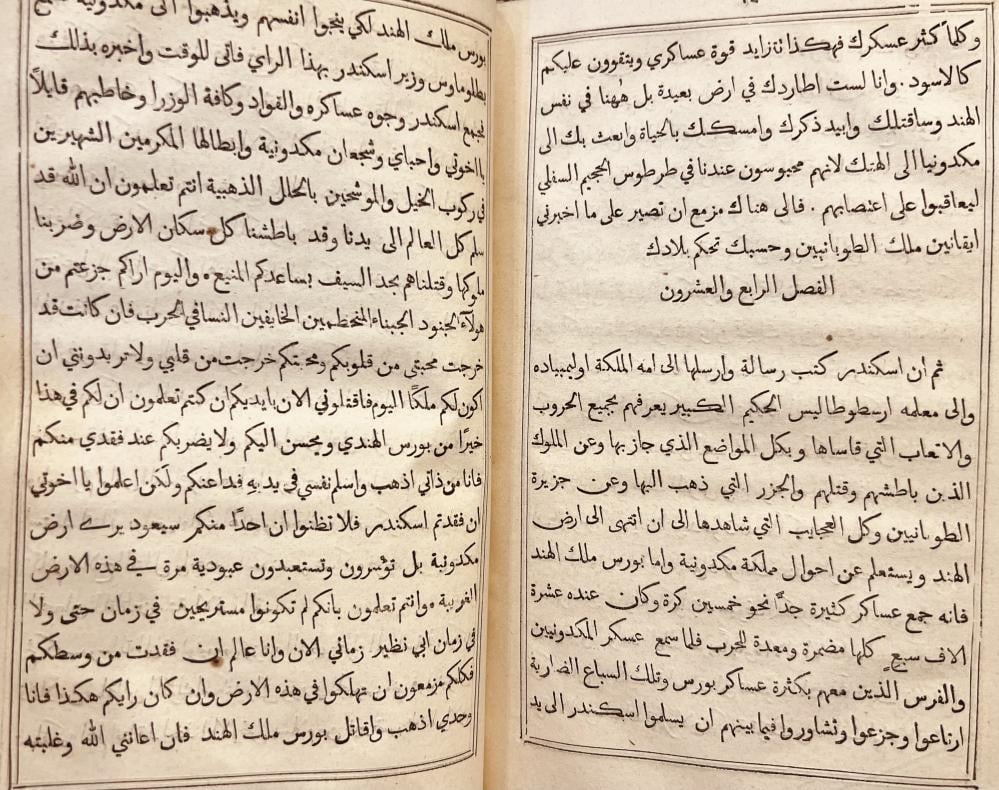 وكلما كثر عسكرك فهكذا تتزايد قوة عساكري ويتقوون عليكم
كالاسود. وانا لست اطاردك في ارض بعيدة بل ههنا في نفس
الهند وساقتلك وابيد ذكرك وامسكك بالحياة وابعث بك الى
مكدونيا الى الهتك لانهم محبوسون عندنا في طرطوس الحجيم السفلي
ليعاقبوا على اغتصابهم. فالى هناك مزمع ان تصير على ما اخبرني
ايقانين ملك الطوبانيين وحسبك تحكم بلادك
الفصل الرابع والعشرون
ثم ان اسكندر كتب رسالة وارسلها الى امه الملكة اوليمبياده
والى معلمه ارسطوطاليس الحكيم الكبير يعرفهم بجميع الحروب
والاتعاب التي قاساها وبكل المواضع الذي جاز بها وعن الملوك
الذين باطشهم وقتلهم والجزر التي ذهب اليها وعن جزيرة
الطوبانيين وكل العجايب التي شاهدها الى ان انتهى الى ارض
الهند ويستعلم عن احوال مملكة مكدونية واما بورس ملك الهند
فانه جمع عساكر كثيرة جدًا نحو خمسين كرة وكان عنده عشرة
الاف سبع كلها مضمرة ومعدة للحرب فلما سمع عسكر المكدونيين
والفرس الذين معهم بكثرة عساكر بورس وتلك السباع الضاربة
ارتاعوا وجزعوا وتشاوروا فيما بينهم ان يسلموا اسكندر الى يد
بورس ملك الهند لكي ينجوا انفسهم ويذهبوا الى مكدونية
بطلوماوس وزير اسكندر بهذا الراي فاتى للوقت واخبره بذلك
فجمع اسكندر وجوه عساكره والقواد وكافة الوزرا وخاطبهم قايلاً
يااخوتي واحباي وشجعان مكدونية وابطالها المكرمين الشهيرين
في ركوب الخيل والموشحين بالحلل الذهبية انتم تعلمون ان الله قد
سلم كل العالم الى يدنا وقد باطشنا كل سكان الارض وضربنا
ملوكها وقتلناهم بحد السيف بساعدكم المنيع. واليوم اراكم جزعتم من
هولآء الجنود الجبناء المنحطمين الخايفين النسا في الحرب فان كانت قد
خرجت محبتي من قلوبكم ومحبتكم خرجت من قلبي ولا تريدونني ان
اكون لكم ملكًا اليوم فاقتلوني الان بايديكم ان كنتم تعلمون ان لكم في هذا
خيرًا من بورس الهندي ويحسن اليكم ولا يضربكم عند فقدي منكم
فانا من ذاتي اذهب واسلم نفسي في يديه فداء عنكم ولكن اعلموا يا اخوتي
ان فقدتم اسكندر فلا تظنوا ان احدًا منكم سيعود يرى ارض
مكدونية بل تؤسرون وتستعبدون عبودية مرة في هذه الارض
الغريبة. وانتم تعلمون بانكم لم تكونوا مستريحين في زمان حتى ولا
في زمان ابي نظير زماني الان وانا عالم ان فقدت من وسطكم
فكلكم مزمعون ان تهلكوا في هذه الارض وان كان رايكم هكذا فانا
وحدي اذهب واقاتل بورس ملك الهند فان اعانني الله وغلبته